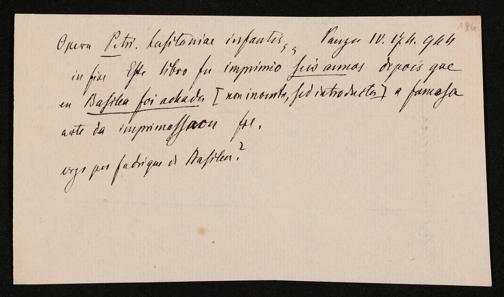 184
Opera Petri Lusitaniae infantis, Panzer IV. 174. 944
in fine Este libro fu imprimio seis annos depois que
en Basilea foi achada [non inventa, sed introducta] a famosa
arte da imprimissaou
ergo per de Basilea?